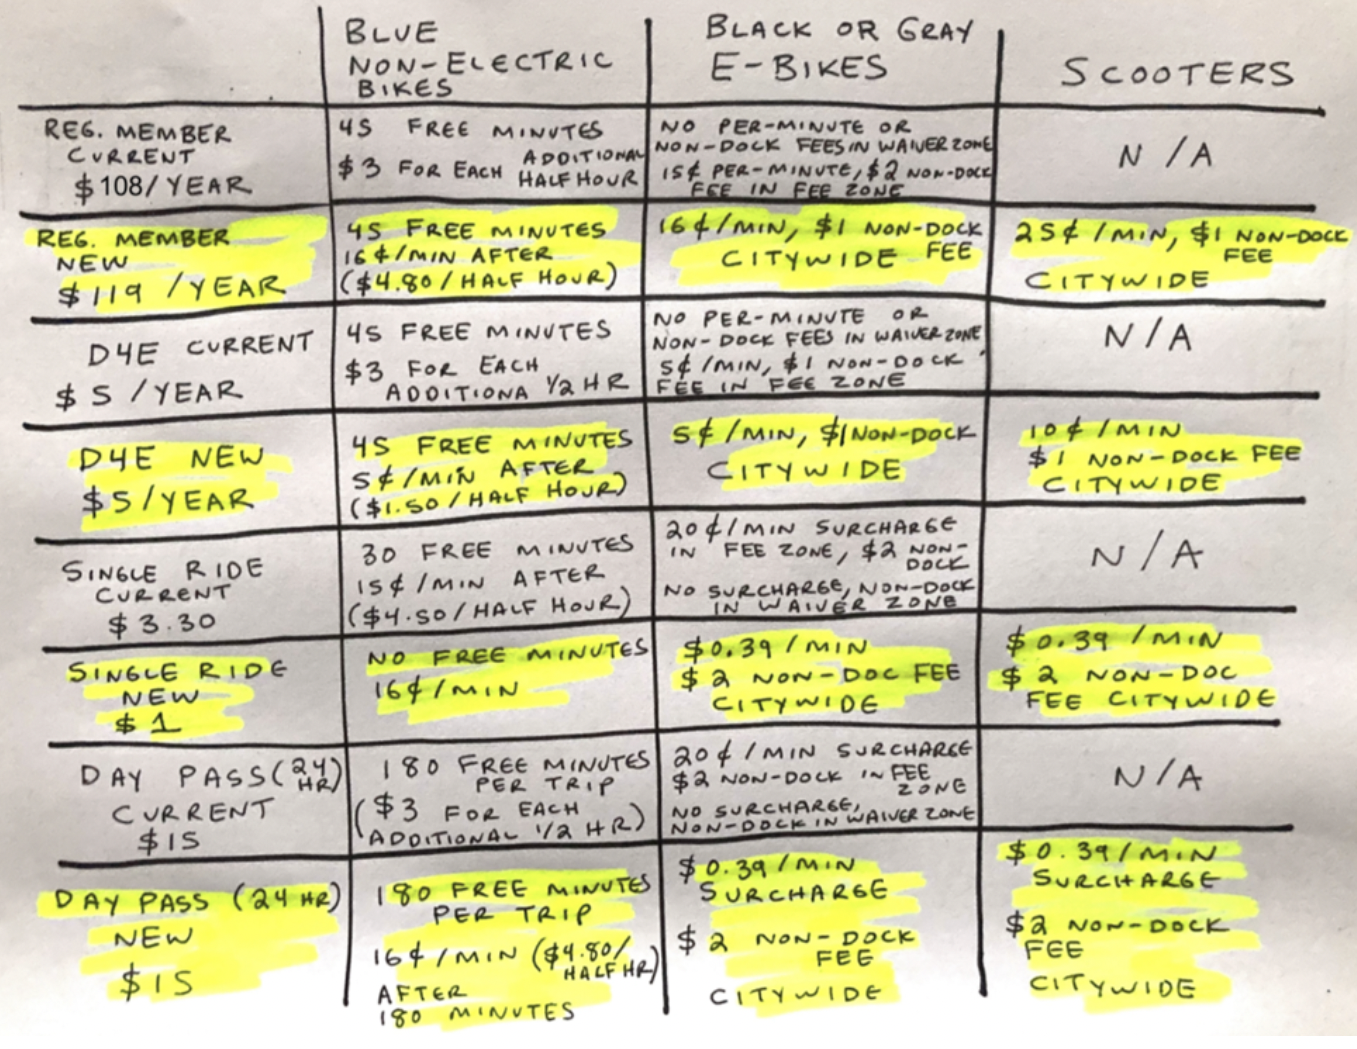 BLUE
NON-ELECTRIC
BIKES
BLACK OR GRAY
E-BIKES
SCOOTERS
REG. MEMBER
CURRENT
$108/YEAR
45 FREE MINUTES
$3 FOR EACH ADDITIONAL
HALF HOUR
NO PER-MINUTE OR
NON-DOCK FEES IN WAIVER ZONE
15¢ PER-MINUTE, $2 NON-DOCK
FEE IN FEE ZONE
N/A
REG. MEMBER
NEW
$119/YEAR
45 FREE MINUTES
16¢/MIN AFTER
($4.80/HALF HOUR)
16¢/MIN, $1 NON-DOCK
CITYWIDE FEE
25¢/MIN, $1 NON-DOCK
FEE
CITYWIDE
D4E CURRENT
$5/YEAR
45 FREE MINUTES
$3 FOR EACH
ADDITIONA 1/2 HR
NO PER-MINUTE OR
NON-DOCK FEES IN WAIVER ZONE
5¢/MIN, $1 NON-DOCK
FEE IN FEE ZONE
N/A
D4E NEW
$5/YEAR
45 FREE MINUTES
5¢/MIN AFTER
($1.50/HALF HOUR)
5¢/MIN, $1 NON-DOCK
CITYWIDE
10¢/MIN
$1 NON-DOCK FEE
CITYWIDE
SINGLE RIDE
CURRENT
$3.30
30 FREE MINUTES
15¢/MIN AFTER
($4.50/HALF HOUR)
20¢/MIN SURCHARGE
IN FEE ZONE, $2 NON-
DOCK
NO SURCHARGE, NON-DOCK
IN WAIVER ZONE
N/A
SINGLE RIDE
NEW
$1
NO FREE MINUTES
16¢/MIN
$0.39/MIN
$2 NON-DOC FEE
CITYWIDE
$0.39/MIN
$2 NON-DOC
FEE CITYWIDE
DAY PASS (24
HR)
CURRENT
$15
180 FREE MINUTES
PER TRIP
($3 FOR EACH
ADDITIONAL 1/2 HR)
20¢/MIN SURCHARGE
$2 NON-DOCK IN FEE
ZONE
NO SURCHARGE,
NON-DOCK IN WAIVER ZONE
N/A
DAY PASS (24 HR)
NEW
$15
180 FREE MINUTES
PER TRIP
16¢/MIN ($4.80/
HALF HR)
AFTER
180 MINUTES
$0.39/MIN
SURCHARGE
$2 NON-DOCK
FEE
CITYWIDE
$0.39/MIN
SURCHARGE
$2 NON-DOCK
FEE
CITYWIDE